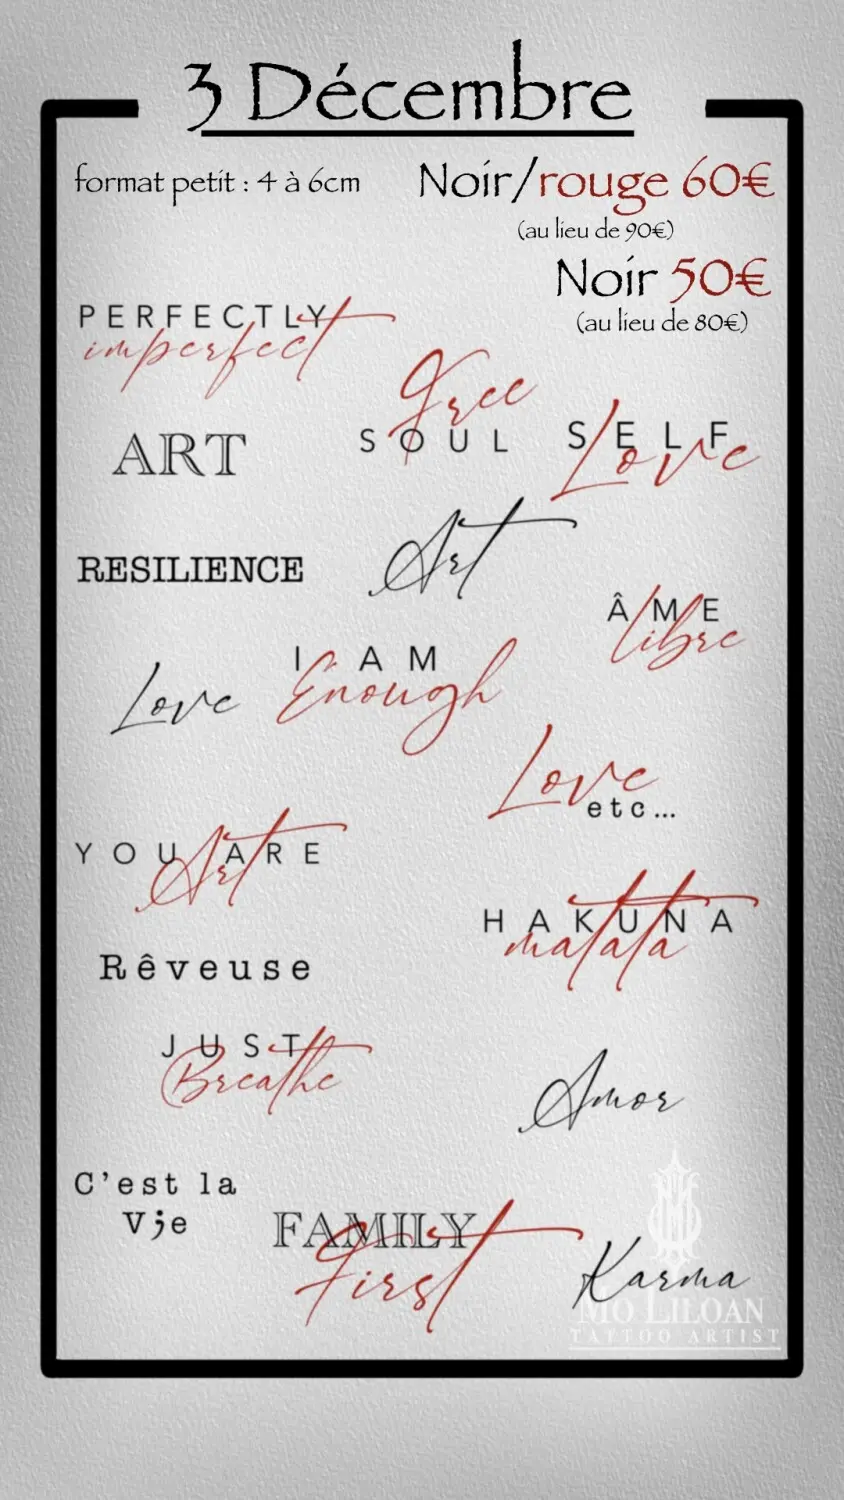 3 Décembre
format petit : 4 à 6cm
Noir/rouge 60€
(au lieu de 90€)
Noir 50€
(au lieu de 80€)
PERFECTLY
imperfect
Free
SOUL
SELF
Love
ART
Art
RESILIENCE
ÂME
libre
I AM
Enough
Love
Love
etc...
YOU ARE
Art
HAKUNA
matata
Rêveuse
JUST
Breathe
Amor
C'est la
V;e
FAMILY
First
Karma
MO LILOAN
TATTOO ARTIST